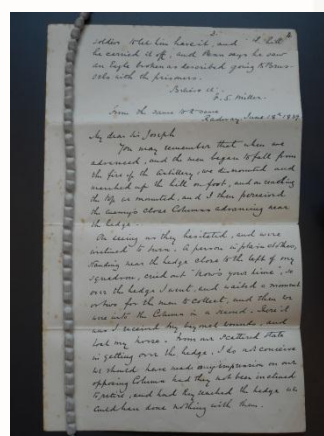 2
soldier to let him have it, and
he carried it off, and Penn says he saw
an Eagle broken as described going to Brus-
sels with the prisoners.
F. S. Miller.
from the same to same
Radway June 18th 18
My dear Sir Joseph
You may remember that when we
advanced, and the men began to fall from
the fire of the Artillery, we dismounted and
marched up the hill on foot, and on reaching
the top we mounted, and I then perceived
the enemy's close Columns advancing near
the hedge.
On seeing us they hesitated, and were
inclined to turn. A person in plain clothes,
standing near the hedge close to the left of my
squadron, cried out "Now's your time", so
over the hedge I went, and waited a moment
or two for the men to collect, and then we
were into the Column in a second. Here it
was I received my bayonet wounds, and
lost my horse. From our scattered state
in getting over the hedge, I do not conceive
we should have made any impression on our
opposing Column had they not been inclined
to retire, and had they reached the hedge we
could have done nothing with them.